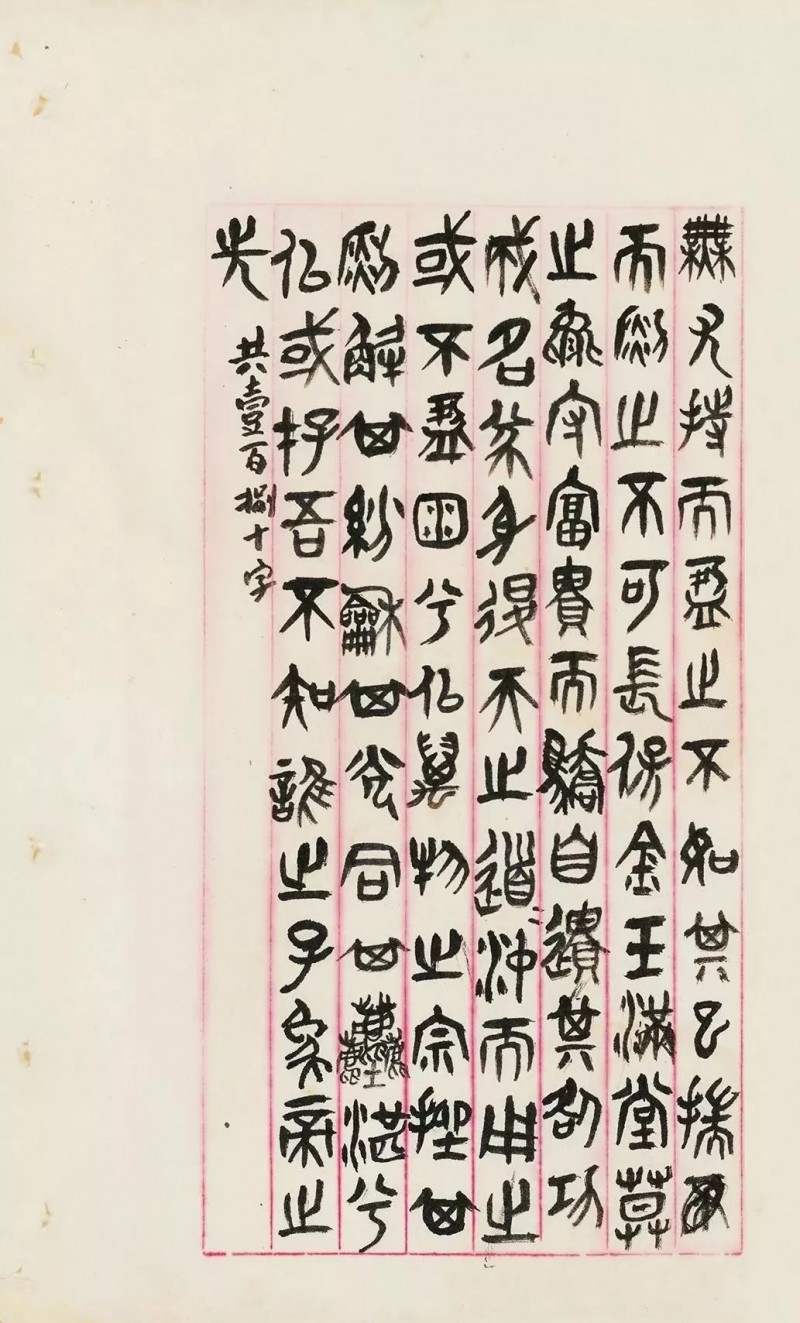 無尤持而盈之不如其已揣
而銳之不可長保金玉滿堂莫
之能守富貴而驕自遺其咎功
成名遂身退天之道沖而用之
或不盈淵兮似萬物之宗挫其
銳解其紛龢其光同其塵湛兮
似或存吾不知誰之子象帝之
先
共壹百捌十字